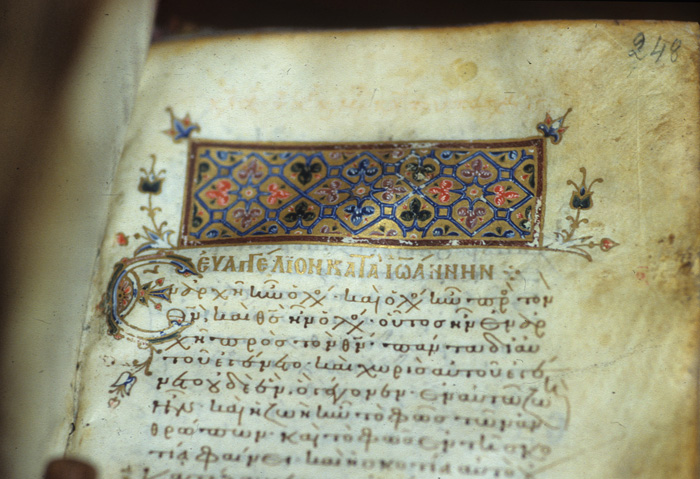 248
ΕΥΑΓΓΕΛΙΟΝ ΚΑΤΑ ΙΩΑΝΝΗΝ
Ἐν ἀρχῆ ἦν ὁ λόγ· καὶ ὁ λόγ ἦν πρὸ τὸν
θν, καὶ θς ἦν ὁ λόγ· οὗτος ἦν ἐν ἀρ
χῆ πρὸς τὸν θν· πάντα δι αὐ
τοῦ ἐγένετο· καὶ χωρὶς αὐτοῦ ἐγέ
νετο οὐδὲ ἕν, ὃ γέγονεν· ἐν αὐτῶ ζω
ὴ ἦν καὶ ἡ ζωὴ ἦν τὸ φῶς τῶν ἀν
θρώπων· καὶ τὸ φῶς ἐν τῆ σκο
τία φαίνει· καὶ ἡ σκοτία αὐτὸ